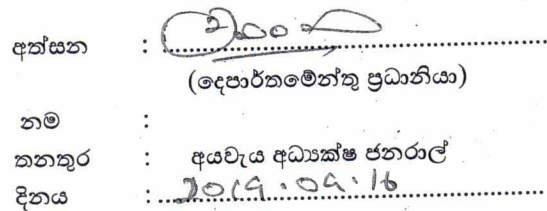 අත්සන :
(දෙපාර්තමේන්තු ප්‍රධානියා)
නම :
තනතුර : අයවැය අධ්‍යක්ෂ ජනරාල්
දිනය : 2019.09.16